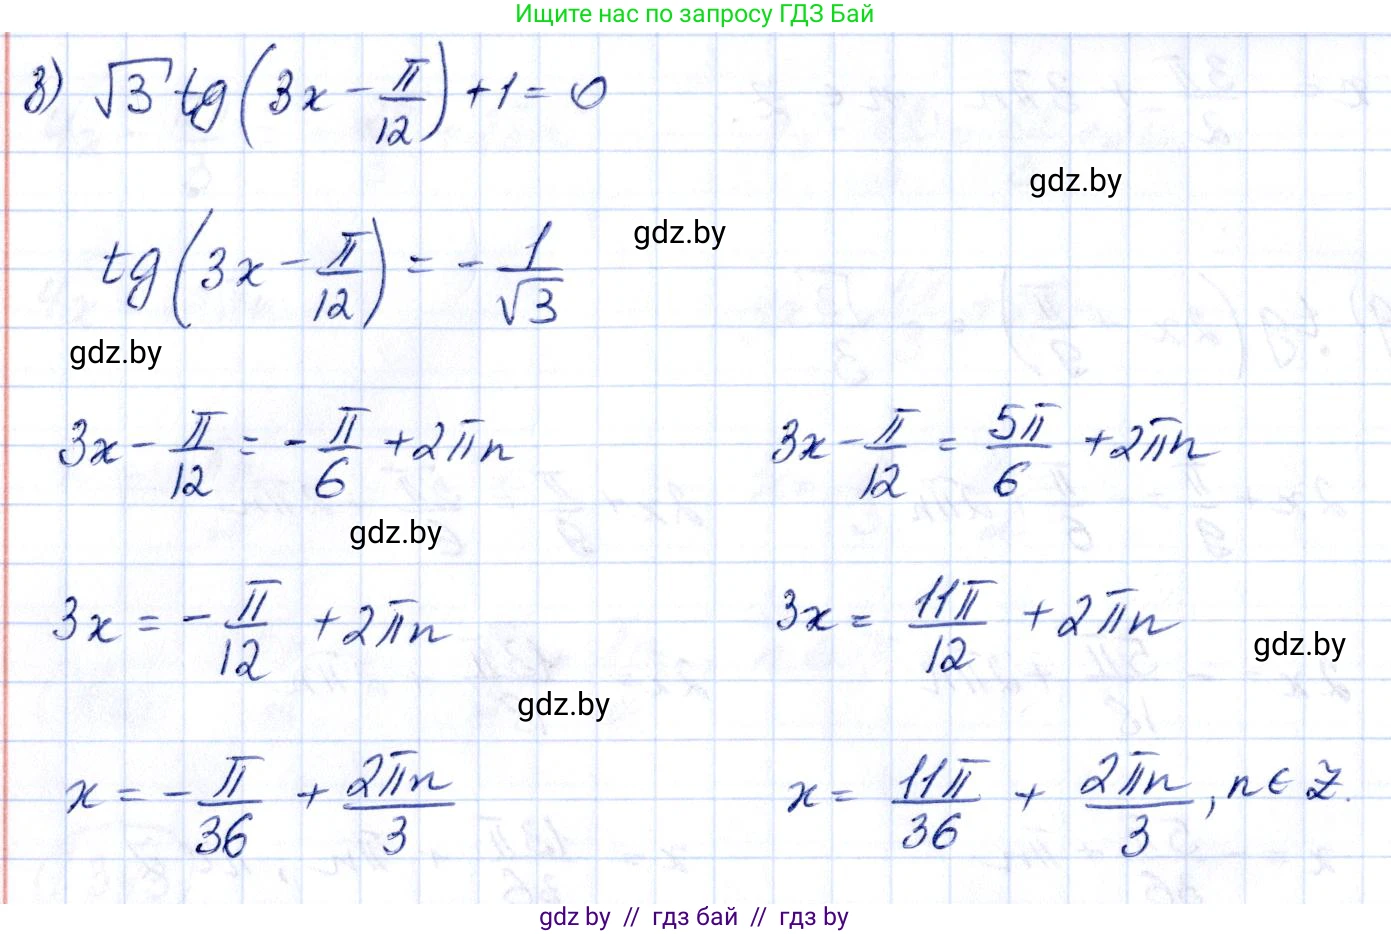 Ищите нас по запросу ГДЗ Бай
з) √3 tg(3x - π/12) + 1 = 0
gdz.by
tg(3x - π/12) = - 1/√3
gdz.by
gdz.by
3x - π/12 = - π/6 + 2πn
3x - π/12 = 5π/6 + 2πn
gdz.by
3x = - π/12 + 2πn
3x = 11π/12 + 2πn
gdz.by
gdz.by
x = - π/36 + 2πn/3
x = 11π/36 + 2πn/3, n ∈ Z.
gdz by // гдз бай // гдз by